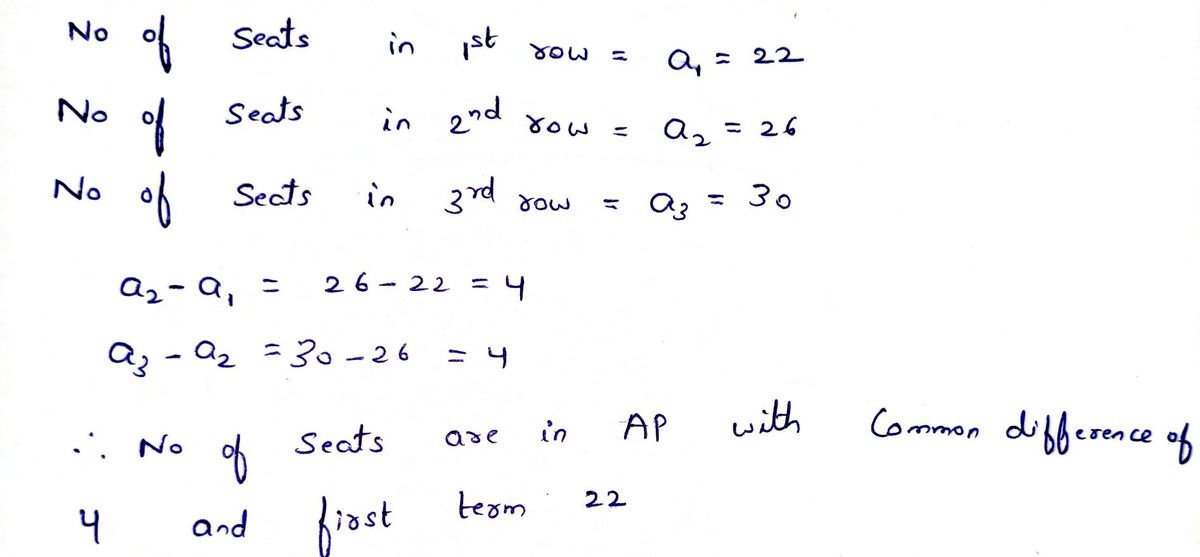 No of Seats in 1st row = a₁ = 22
No of Seats in 2nd row = a₂ = 26
No of Seats in 3rd row = a₃ = 30
a₂ - a₁ = 26 - 22 = 4
a₃ - a₂ = 30 - 26 = 4
∴ No of Seats are in AP with Common difference of
4 and first term 22